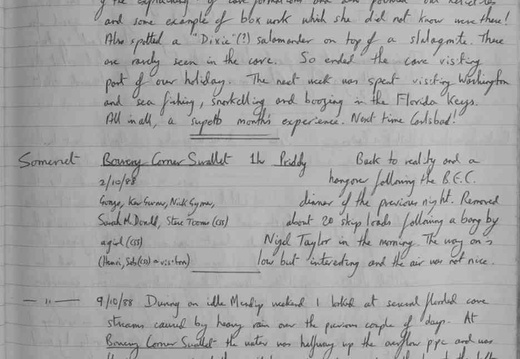 and some example of box work which she did not know were there!
Also spotted a "Dixie"(?) salamander on top of a stalagmite. These
are rarely seen in the cave. So ended the cave visiting
part of our holiday. The next week was spent visiting Washington
and sea fishing, snorkelling and boozing in the Florida Keys.
All in all, a superb months experience. Next time Carlsbad!
Somerset Bowery Corner Swallet 1h Priddy Back to reality and a
2/10/88 hangover following the B.E.C.
Gonzo, Nick dinner of the previous night. Removed
Sarah McDonald, Steve (CSS) about 20 skip loads following a bang by
(CSS) Nigel Taylor in the morning. The way on is
(CSS) = visitors) low but interesting and the air was not nice.
— " — 9/10/88 During an idle Mendip weekend I looked at several flooded cave
streams caused by heavy rain over the previous couple of days. At
Bowery Corner Swallet the water was halfway up the overflow pipe and was